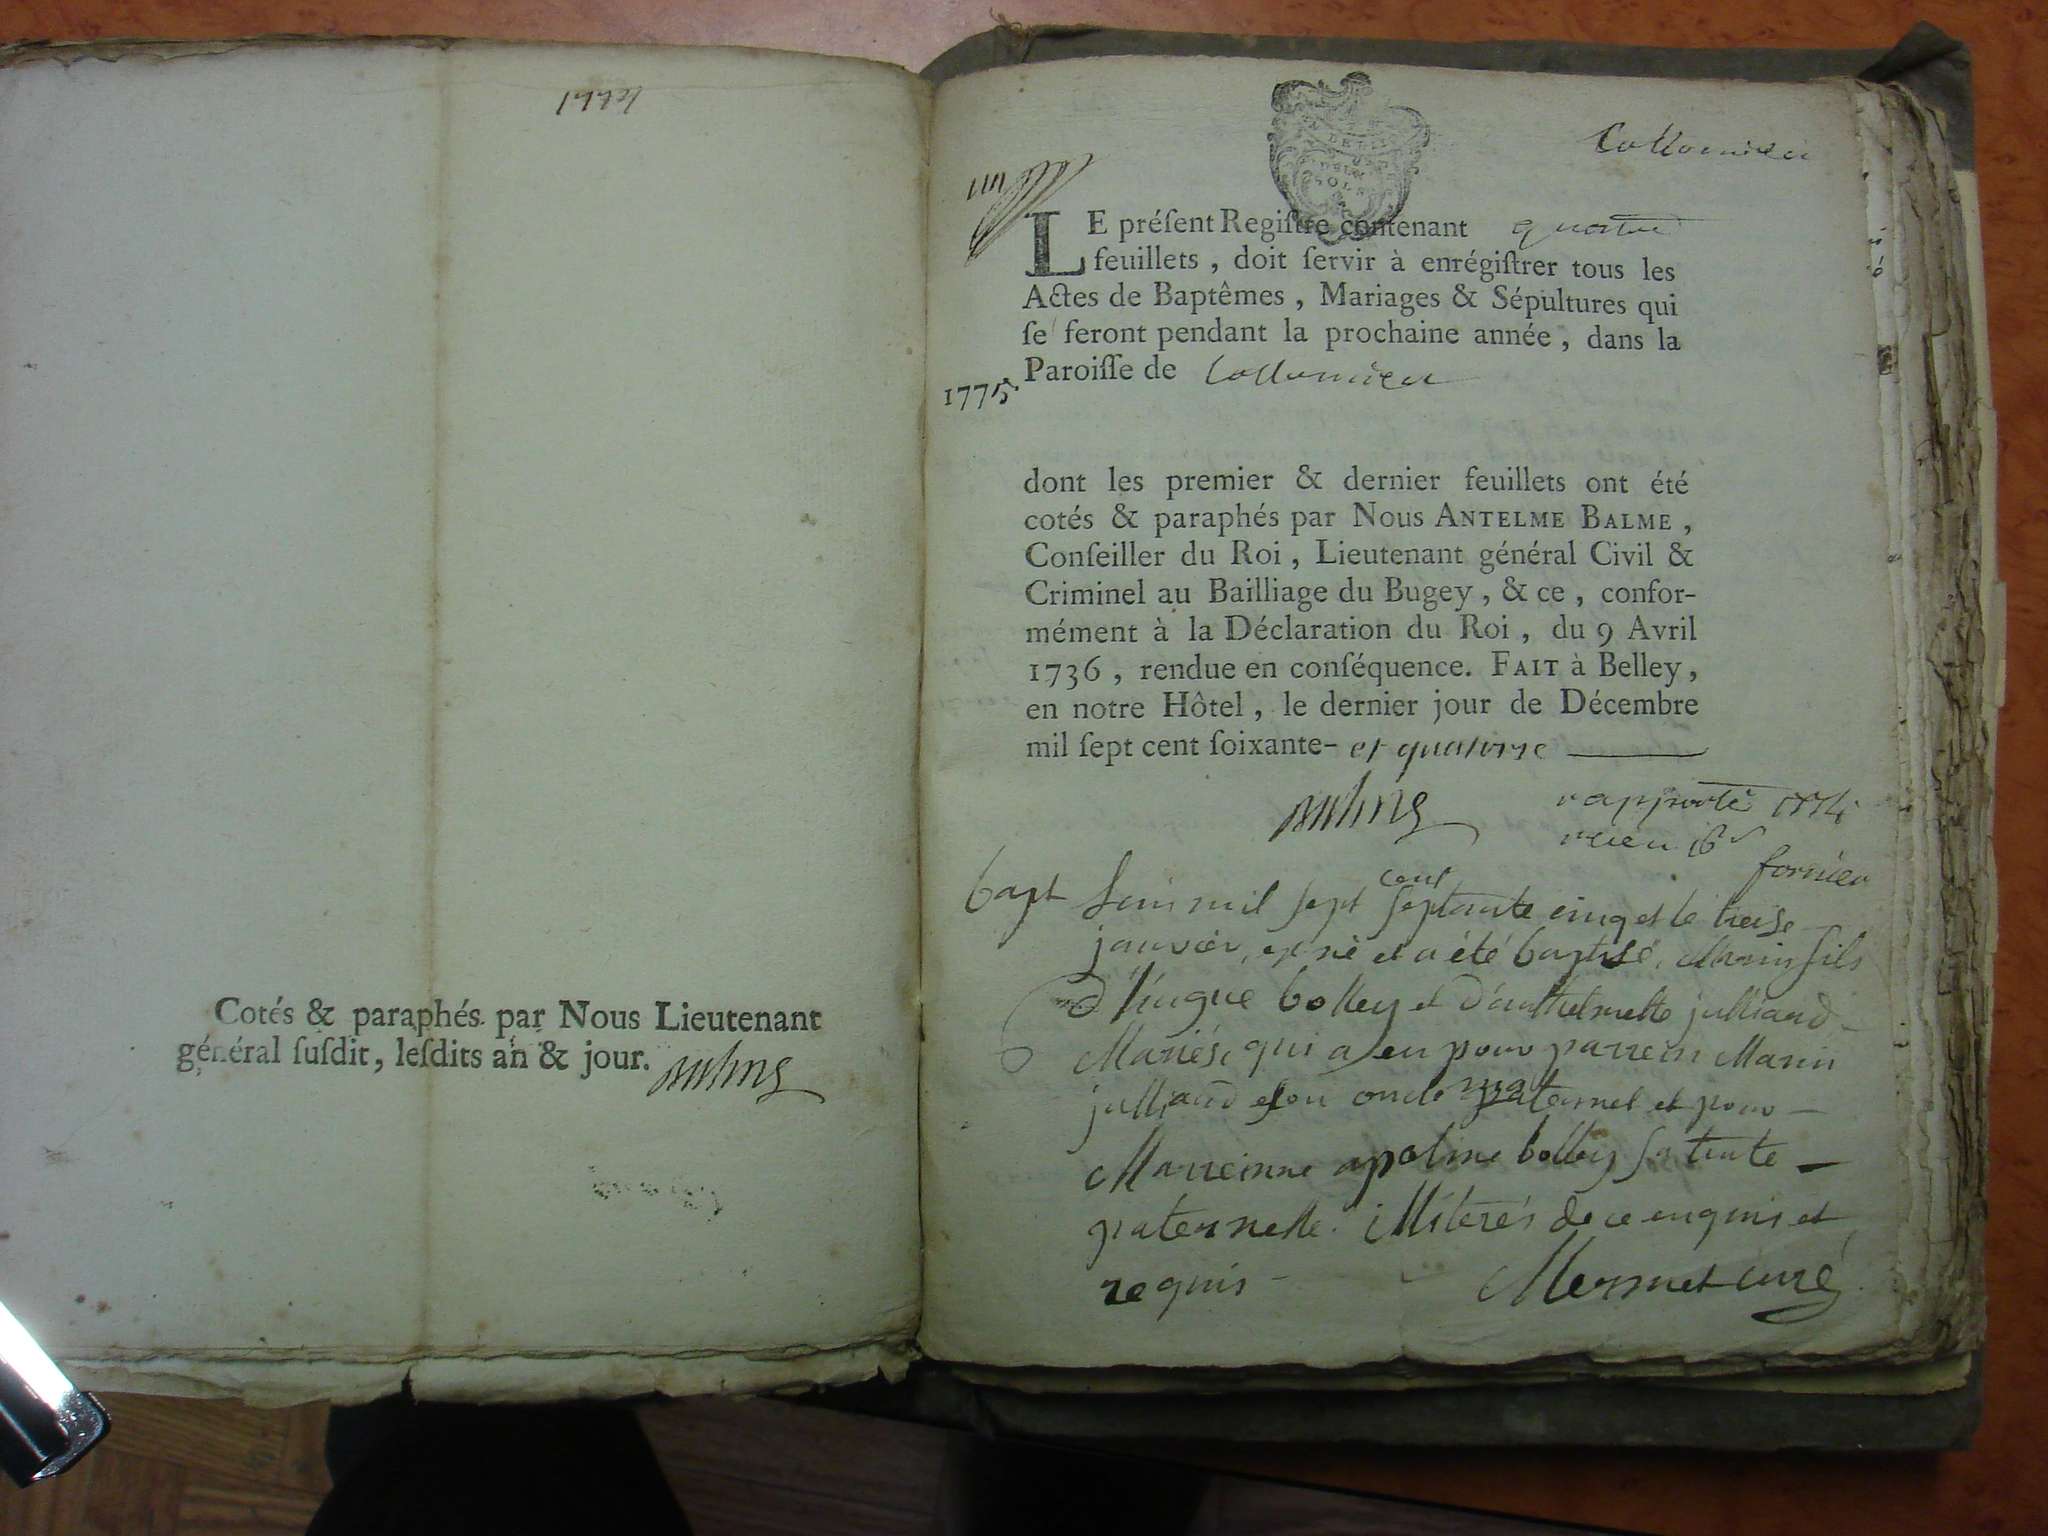 1774
Cotés & paraphés par Nous Lieutenant
général ſuſdit, leſdits an & jour.
Collomieu
LE préſent Regiſtre contenant quatre
feuillets, doit ſervir à enrégiſtrer tous les
Actes de Baptêmes, Mariages & Sépultures qui
ſe feront pendant la prochaine année, dans la
Paroiſſe de Collomieu
1775.
dont les premier & dernier feuillets ont été
cotés & paraphés par Nous ANTELME BALME,
Conſeiller du Roi, Lieutenant général Civil &
Criminel au Bailliage du Bugey, & ce, confor-
mément à la Déclaration du Roi, du 9 Avril
1736, rendue en conſéquence. FAIT à Belley,
en notre Hôtel, le dernier jour de Décembre
mil ſept cent ſoixante- et quatorze
rapporté 1774
fornier
bapt L'an mil sept cent septante cinq et le treise
janvier, est né et a été baptisé, Marin fils
d'hugue bolley et d'anthelmette julliand
Mariés, qui a eu pour parrein Marin
julliand son oncle maternel et pour
Marreinne apoline bolley sa tente
paternelle. illiterés de ce enquis et
requis Mermet curé